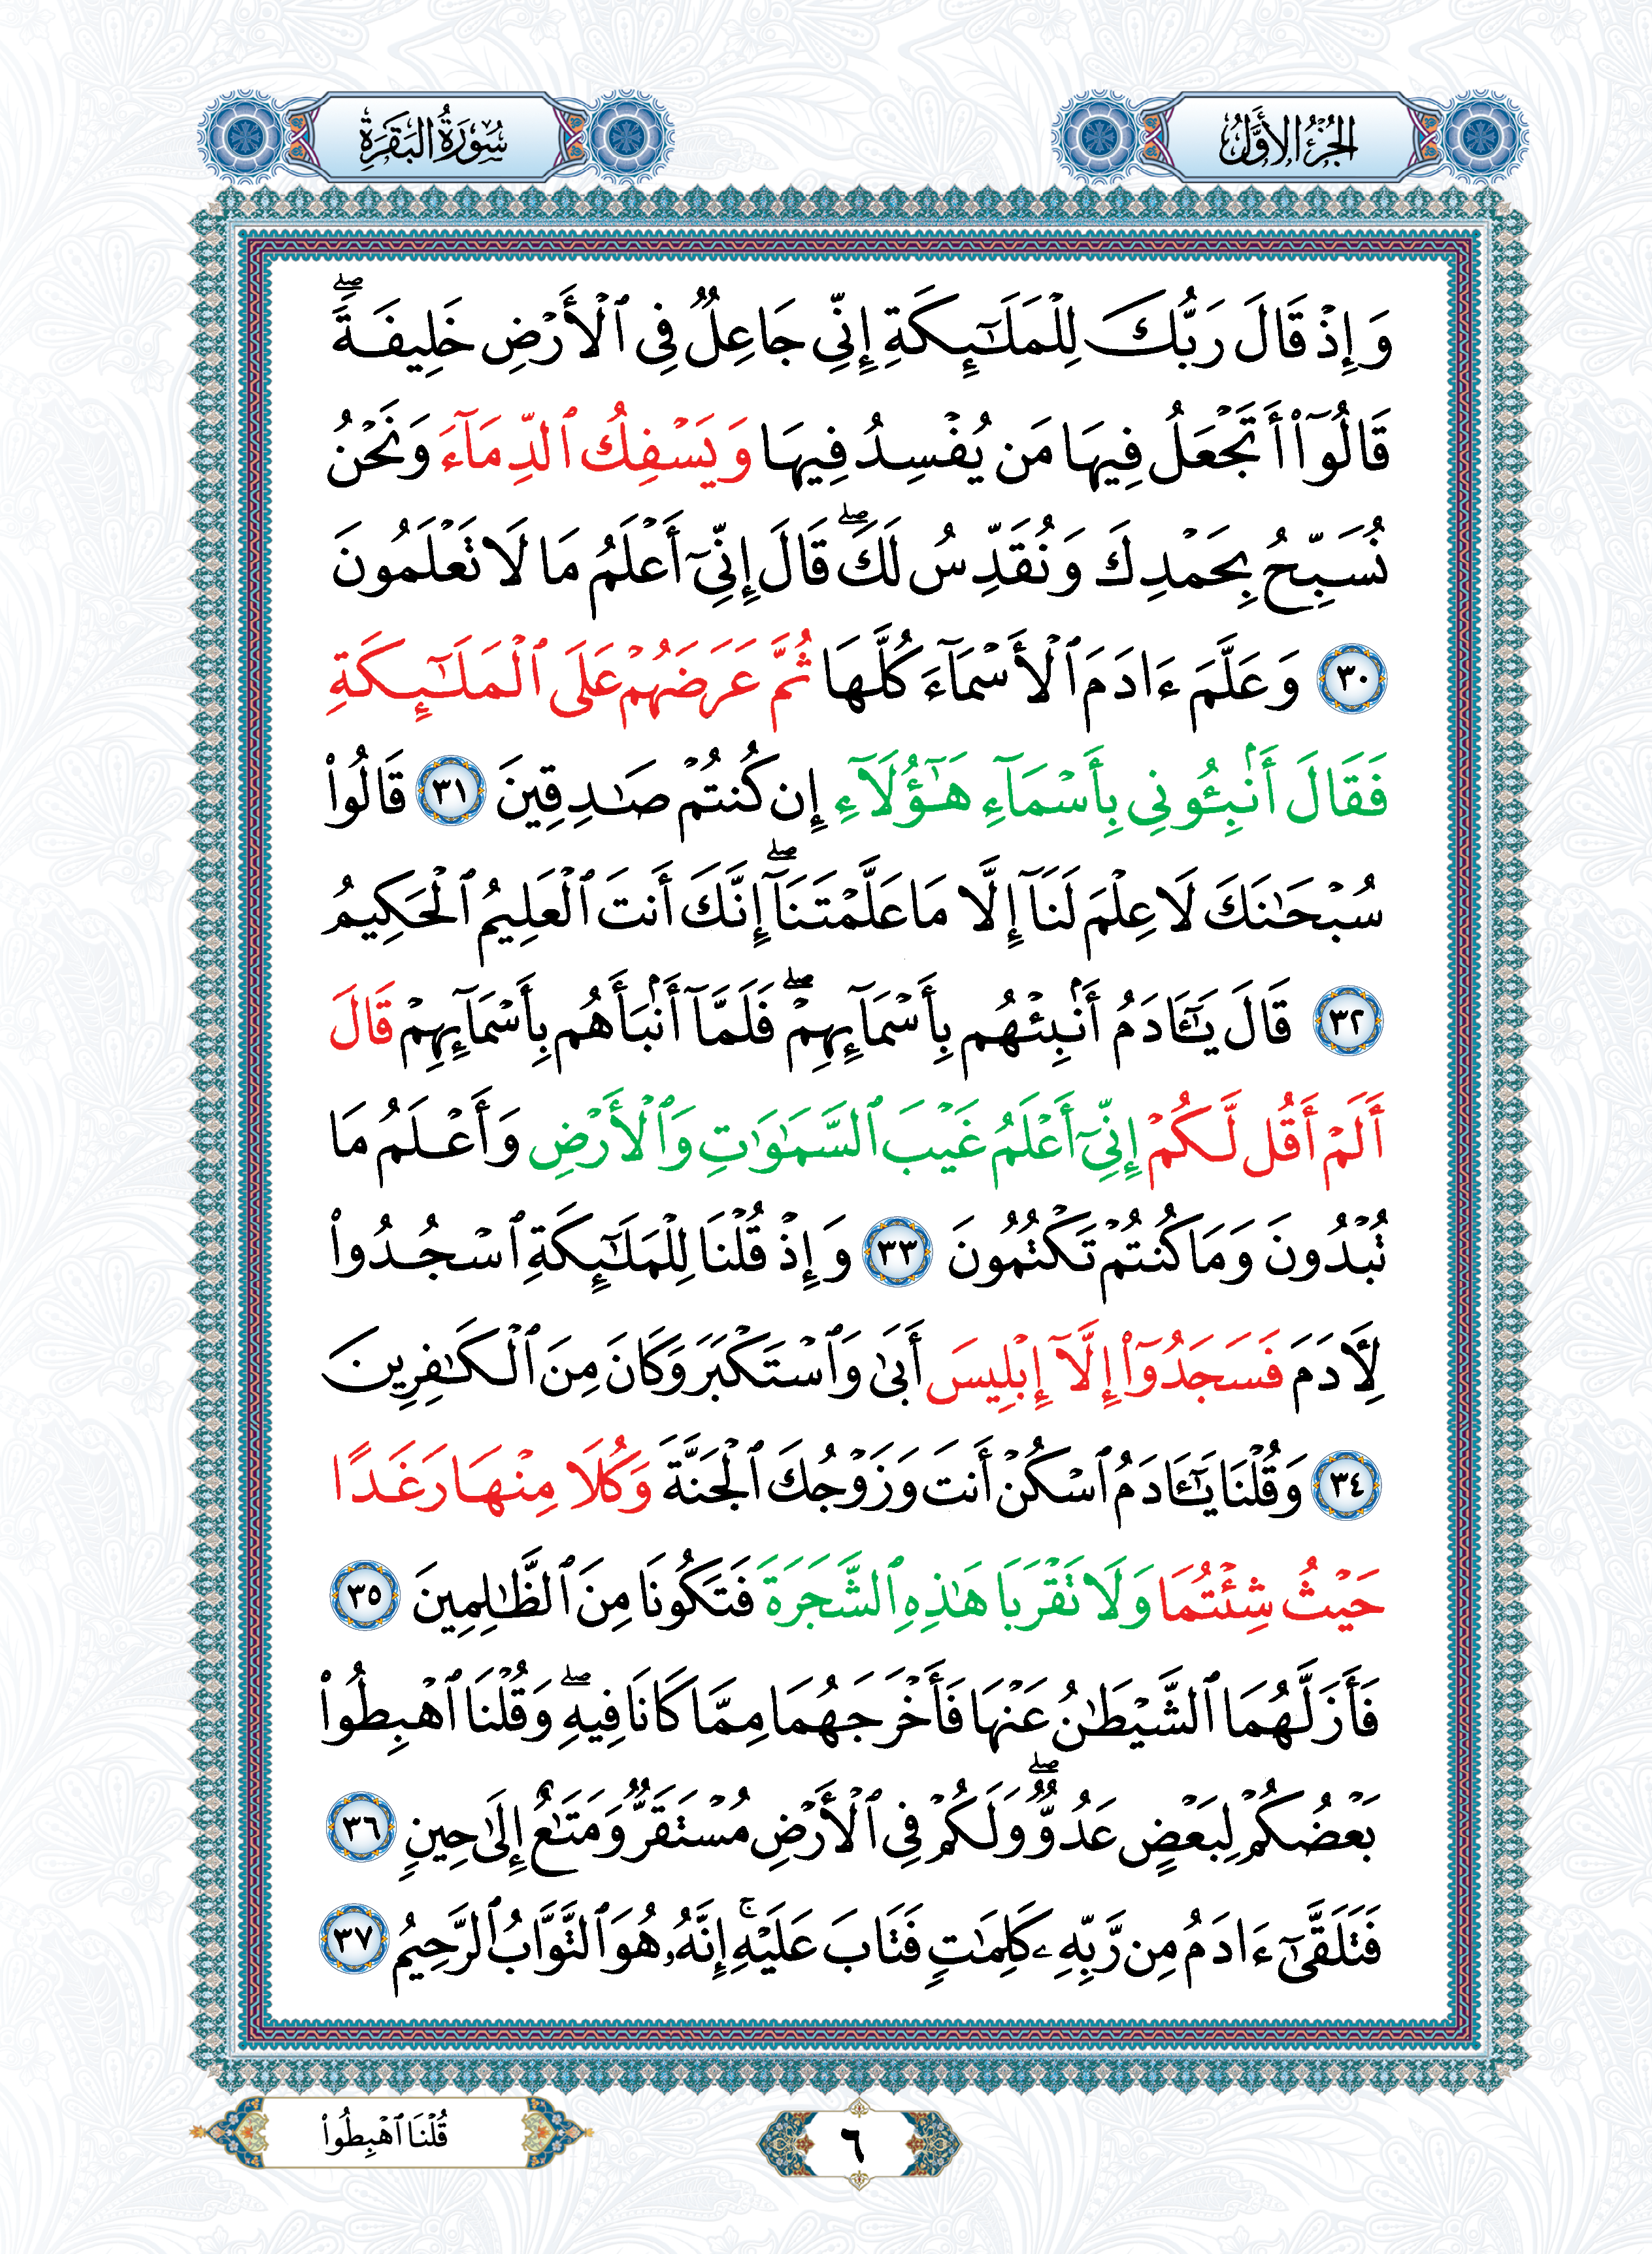 الجزء الأوّل
سُورَةُ البَقَرَةِ
وَإِذْ قَالَ رَبُّكَ لِلْمَلَٰٓئِكَةِ إِنِّى جَاعِلٌ فِى ٱلْأَرْضِ خَلِيفَةً ۖ
قَالُوٓا۟ أَتَجْعَلُ فِيهَا مَن يُفْسِدُ فِيهَا وَيَسْفِكُ ٱلدِّمَآءَ وَنَحْنُ
نُسَبِّحُ بِحَمْدِكَ وَنُقَدِّسُ لَكَ ۖ قَالَ إِنِّىٓ أَعْلَمُ مَا لَا تَعْلَمُونَ
٣٠ وَعَلَّمَ ءَادَمَ ٱلْأَسْمَآءَ كُلَّهَا ثُمَّ عَرَضَهُمْ عَلَى ٱلْمَلَٰٓئِكَةِ
فَقَالَ أَنۢبِـُٔونِى بِأَسْمَآءِ هَٰٓؤُلَآءِ إِن كُنتُمْ صَٰدِقِينَ ٣١ قَالُوا۟
سُبْحَٰنَكَ لَا عِلْمَ لَنَآ إِلَّا مَا عَلَّمْتَنَآ ۖ إِنَّكَ أَنتَ ٱلْعَلِيمُ ٱلْحَكِيمُ
٣٢ قَالَ يَٰٓـَٔادَمُ أَنۢبِئْهُم بِأَسْمَآئِهِمْ ۖ فَلَمَّآ أَنۢبَأَهُم بِأَسْمَآئِهِمْ قَالَ
أَلَمْ أَقُل لَّكُمْ إِنِّىٓ أَعْلَمُ غَيْبَ ٱلسَّمَٰوَٰتِ وَٱلْأَرْضِ وَأَعْلَمُ مَا
تُبْدُونَ وَمَا كُنتُمْ تَكْتُمُونَ ٣٣ وَإِذْ قُلْنَا لِلْمَلَٰٓئِكَةِ ٱسْجُدُوا۟
لِءَادَمَ فَسَجَدُوٓا۟ إِلَّآ إِبْلِيسَ أَبَىٰ وَٱسْتَكْبَرَ وَكَانَ مِنَ ٱلْكَٰفِرِينَ
٣٤ وَقُلْنَا يَٰٓـَٔادَمُ ٱسْكُنْ أَنتَ وَزَوْجُكَ ٱلْجَنَّةَ وَكُلَا مِنْهَا رَغَدًا
حَيْثُ شِئْتُمَا وَلَا تَقْرَبَا هَٰذِهِ ٱلشَّجَرَةَ فَتَكُونَا مِنَ ٱلظَّٰلِمِينَ ٣٥
فَأَزَلَّهُمَا ٱلشَّيْطَٰنُ عَنْهَا فَأَخْرَجَهُمَا مِمَّا كَانَا فِيهِ ۖ وَقُلْنَا ٱهْبِطُوا۟
بَعْضُكُمْ لِبَعْضٍ عَدُوٌّ ۖ وَلَكُمْ فِى ٱلْأَرْضِ مُسْتَقَرٌّ وَمَتَٰعٌ إِلَىٰ حِينٍ ٣٦
فَتَلَقَّىٰٓ ءَادَمُ مِن رَّبِّهِۦ كَلِمَٰتٍ فَتَابَ عَلَيْهِ ۚ إِنَّهُۥ هُوَ ٱلتَّوَّابُ ٱلرَّحِيمُ ٣٧
قُلْنَا ٱهْبِطُوا۟
٦